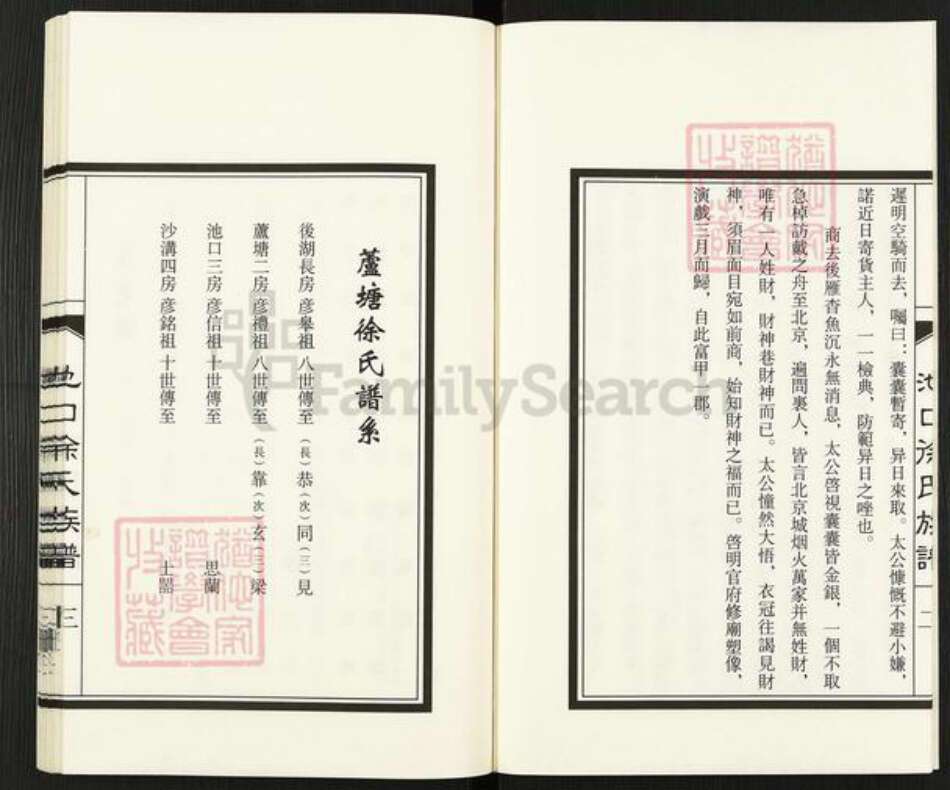 遲明空騎而去，囑曰：囊橐暫寄，异日來取。太公慷慨不避小嫌，
諾近日寄貨主人，一一檢典，防範异日之唑也。
商去後雁杳魚沉永無消息，太公啓視囊橐皆金銀，一個不取
急棹訪戴之舟至北京，遍問裏人，皆言北京城烟火萬家并無姓財，
唯有一人姓財，財神巷財神而已。太公憧然大悟，衣冠往謁見財
神，須眉面目宛如前商，始知財神之福而已。啓明官府修廟塑像，
演戲三月而歸，自此富甲一郡。
池口徐氏族譜
二
蘆塘徐氏譜系
後湖長房 彥皋祖 八世傳至（長）恭（次）同（三）見
蘆塘二房 彥禮祖 八世傳至（長）靠（次）玄（三）梁
池口三房 彥信祖 十世傳至 思蘭
沙溝四房 彥銘祖 十世傳至
池口徐氏族譜
FamilySearch